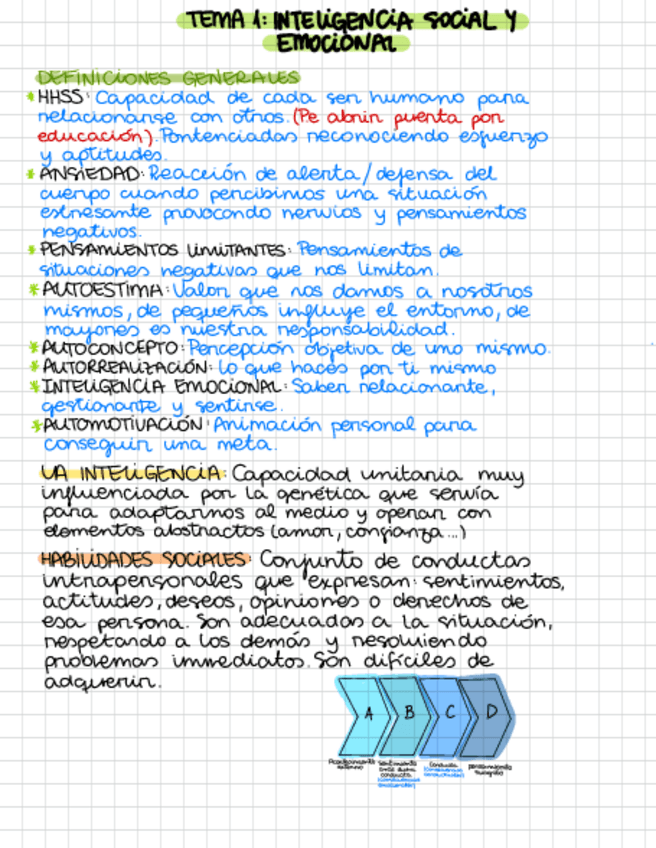 TEMA 1: INTELIGENCIA SOCIAL Y
EMOCIONAL
DEFINICIONES GENERALES
* HHSS: Capacidad de cada ser humano para
relacionarse con otros. (Pe abrir puerta por
educación). Pontenciadas reconociendo esfuerzo
y aptitudes.
* ANSIEDAD: Reacción de alerta/defensa del
cuerpo cuando percibimos una situación
estresante provocando nervios y pensamientos
negativos.
* PENSAMIENTOS LIMITANTES: Pensamientos de
situaciones negativas que nos limitan.
* AUTOESTIMA: Valor que nos damos a nosotros
mismos, de pequeños influye el entorno, de
mayores es nuestra responsabilidad.
* AUTOCONCEPTO: Percepción objetiva de uno mismo.
* AUTORREALIZACIÓN: Lo que haces por ti mismo
* INTELIGENCIA EMOCIONAL: Saber relacionarte,
gestionarte y sentirse.
* AUTOMOTIVACIÓN: Animación personal para
conseguir una meta.
LA INTELIGENCIA: Capacidad unitaria muy
influenciada por la genética que servía
para adaptarnos al medio y operar con
elementos abstractos (amor, confianza...)
HABILIDADES SOCIALES: Conjunto de conductas
intrapersonales que expresan: sentimientos,
actitudes, deseos, opiniones o derechos de
esa persona. Son adecuadas a la situación,
respetando a los demás y resolviendo
problemas inmediatos. Son difíciles de
adquirir.
A B C D
Acontecimiento
externo
Sentimiento
conducta
Conducta
pensamiento